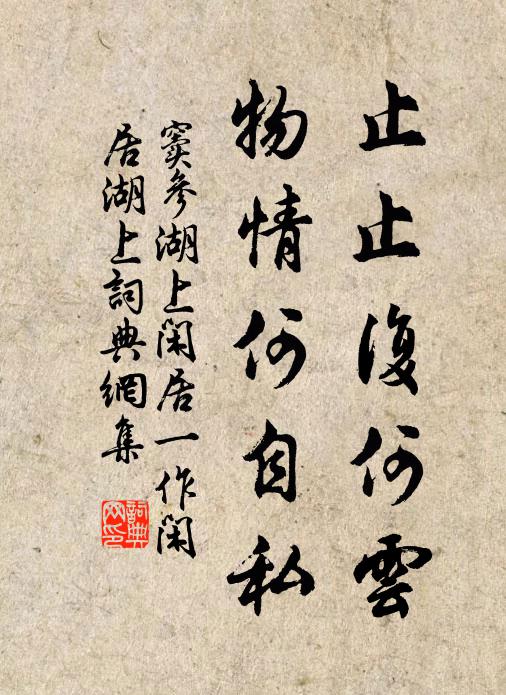 止止復何雲
物情何自私
竇參湖上閑居一作閑
居湖上詞典網集
詞典
网印